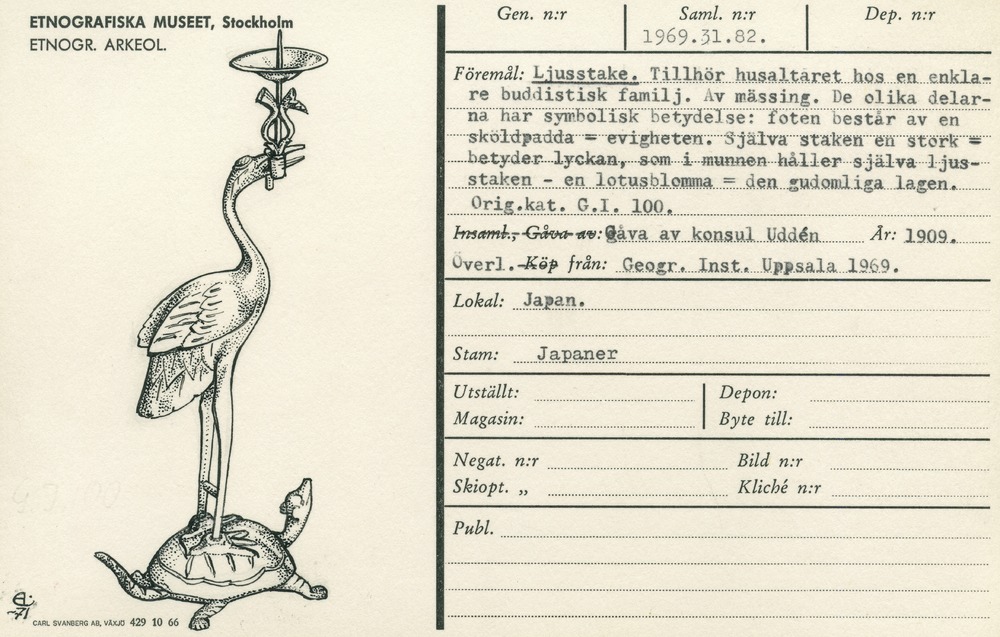 ETNOGRAFISKA MUSEET, Stockholm
ETNOGR. ARKEOL.
Gen. n:r Saml. n:r Dep. n:r
1969.31.82.
Föremål: Ljusstake. Tillhör husaltaret hos en enkla-
re buddistisk familj. Av mässing. De olika delar-
na har symbolisk betydelse: foten består av en
sköldpadda = evigheten. Själva staken en stork =
betyder lyckan, som i munnen håller själva ljus-
staken - en lotusblomma = den gudomliga lagen.
Orig.kat. G.I. 100.
Insaml., Gåva av: Gåva av konsul Uddén År: 1909.
Överl. Köp från: Geogr. Inst. Uppsala 1969.
Lokal: Japan.
Stam: Japaner
Utställt: Depon:
Magasin: Byte till:
Negat. n:r Bild n:r
Skiopt. „ Kliché n:r
Publ.
71
CARL SVANBERG AB, VÄXJÖ 429 10 66